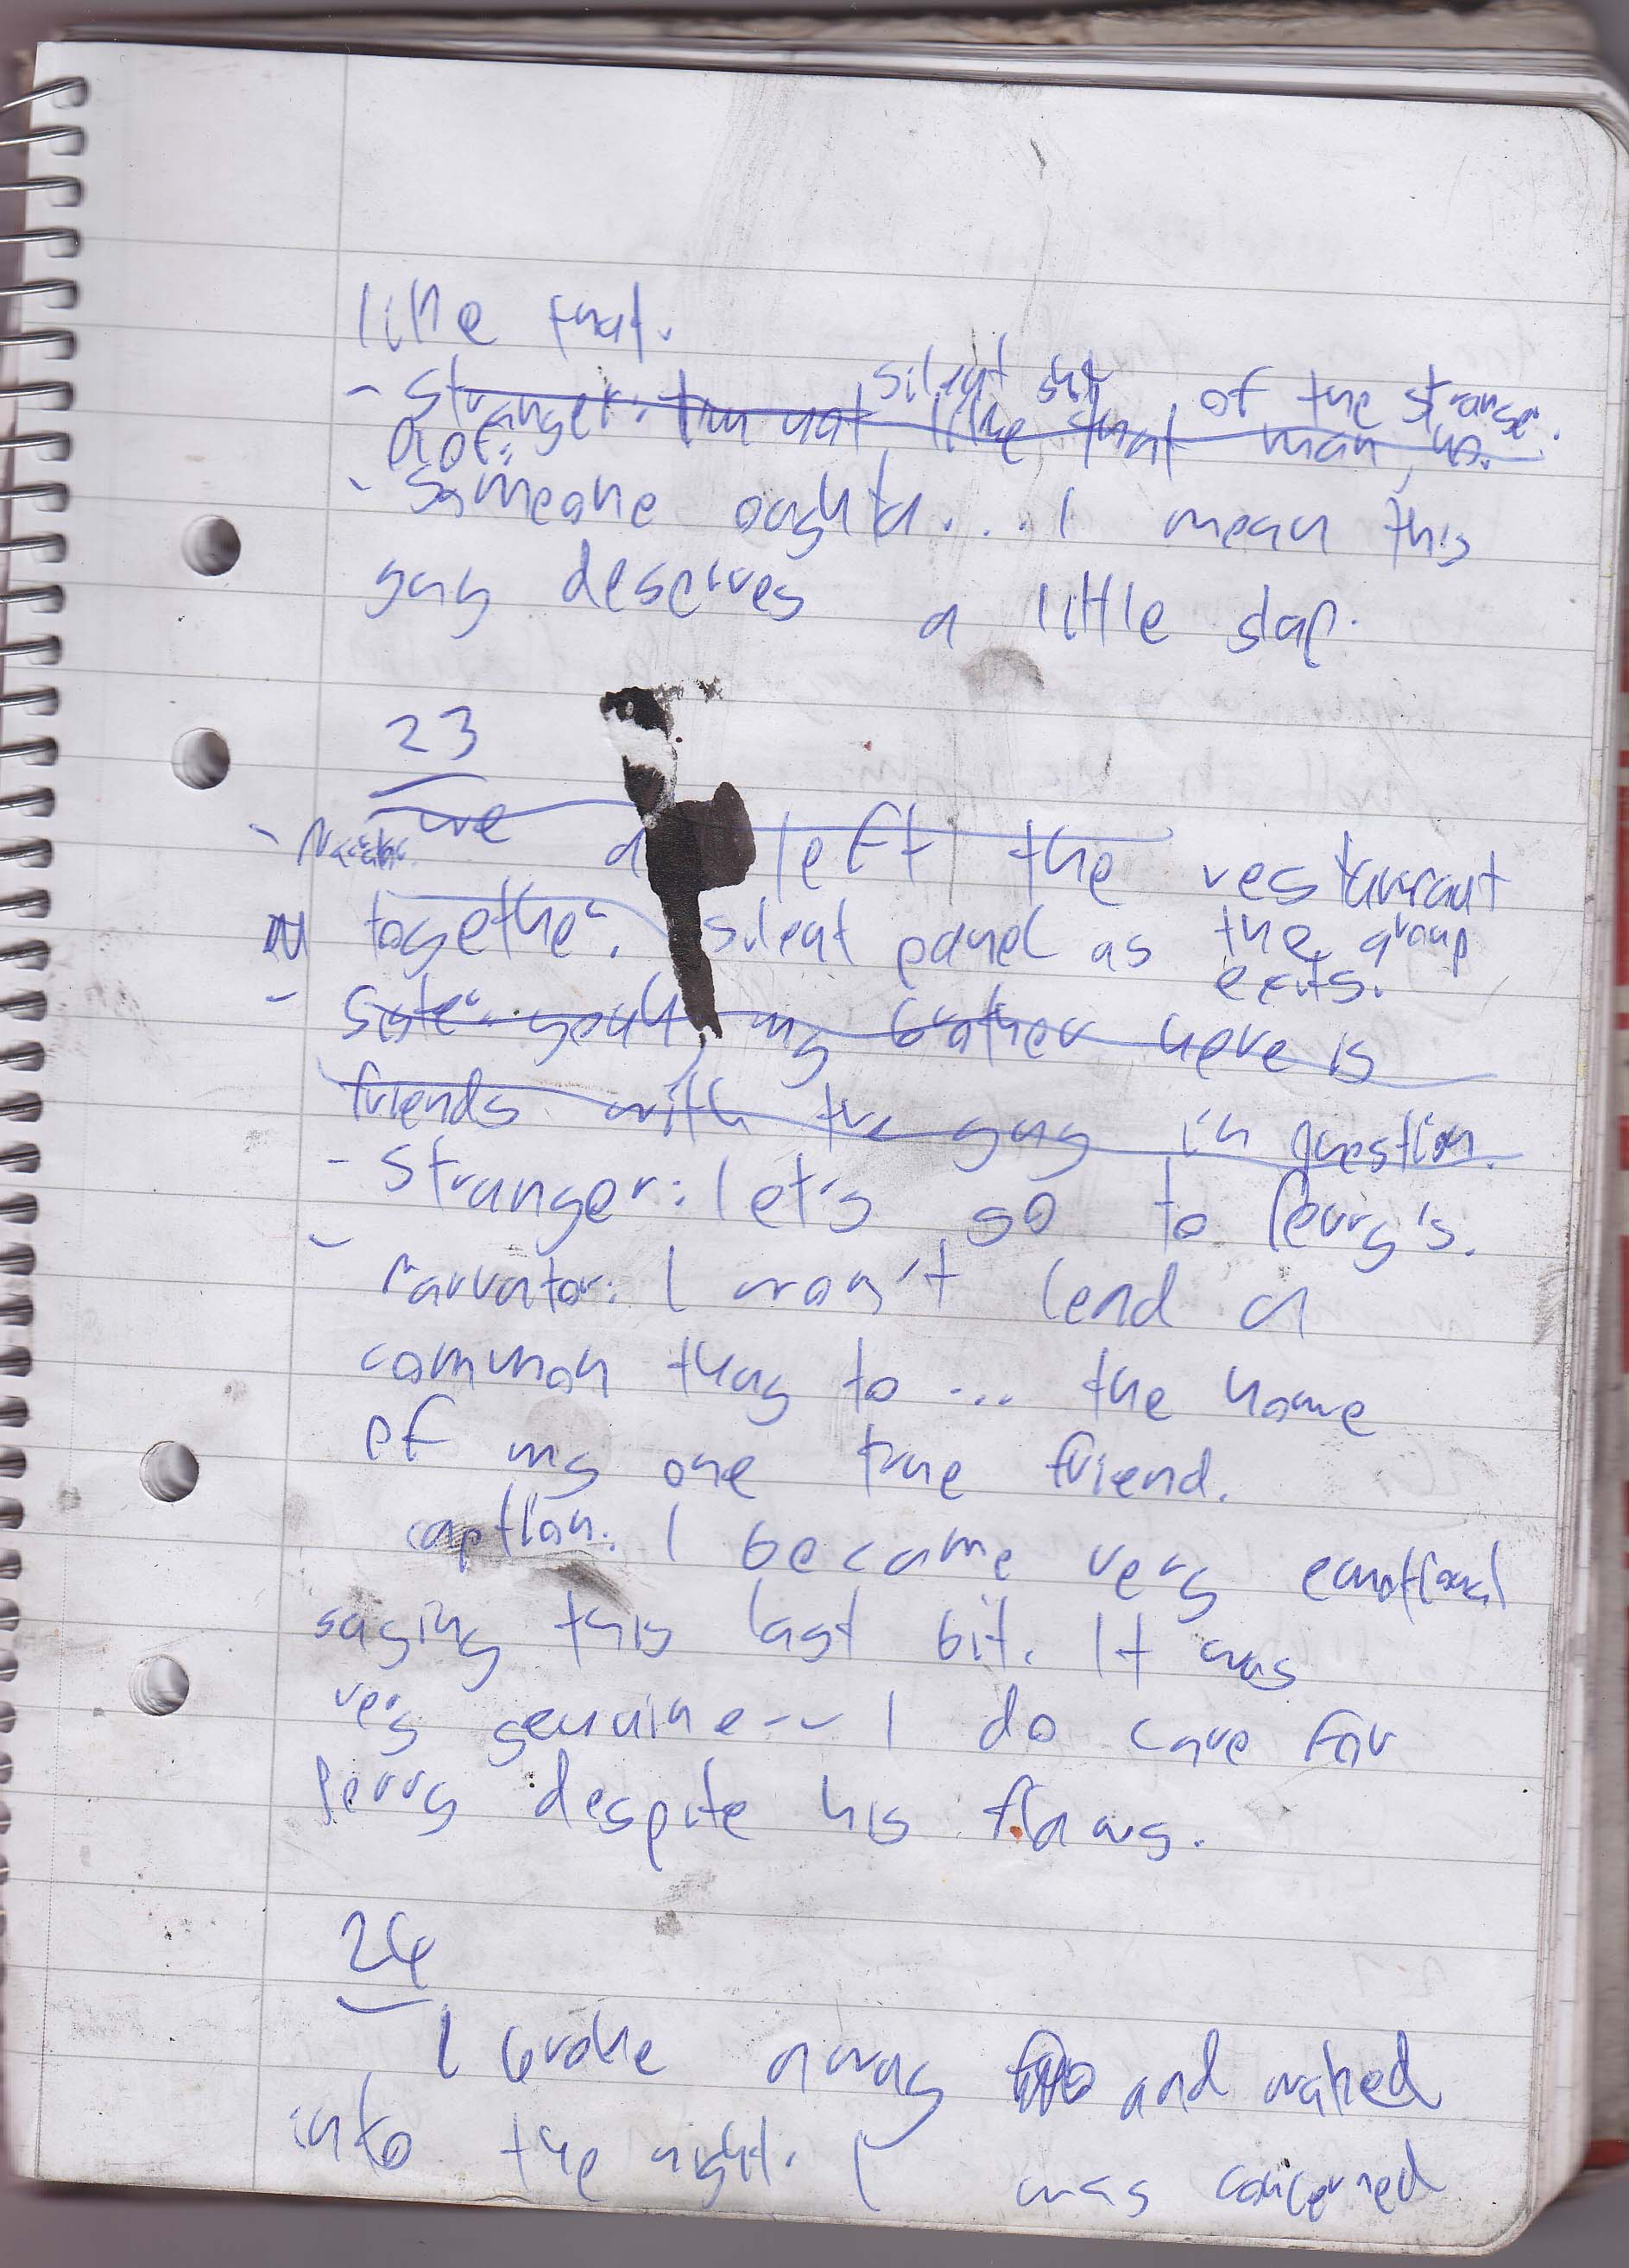 like that.
silent shot of the stranger.
- Stranger: I'm not like that man, no.
- Someone oughta... I mean this
guy deserves a little slap.
23
- we a left the restaurant
together. silent panel as the group
exits.
- Sister: yeah, my brother here is
friends with the guy in question.
- Stranger: let's go to Perry's.
- Narrator: I won't lend a
common thug to ... the home
of my one true friend.
caption: I became very emotional
saying this last bit. It was
very genuine -- I do care for
Perry despite his flaws.
24
I broke away and walked
into the night. I was concerned